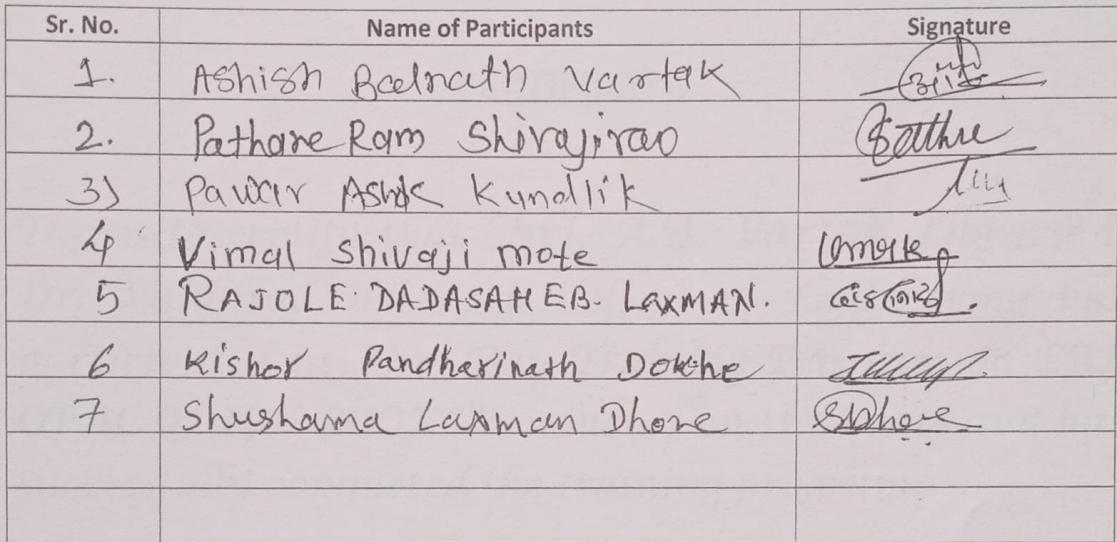 Sr. No. Name of Participants Signature
1. Ashish Badnath Vartak
2. Pathare Ram Shivajirao
3) Pawar Ashok Kundlik
4 Vimal Shivaji mote
5 RAJOLE. DADASAHEB. LAXMAN.
6 Kishor Pandharinath Dokhe
7 Shushama Laxman Dhone